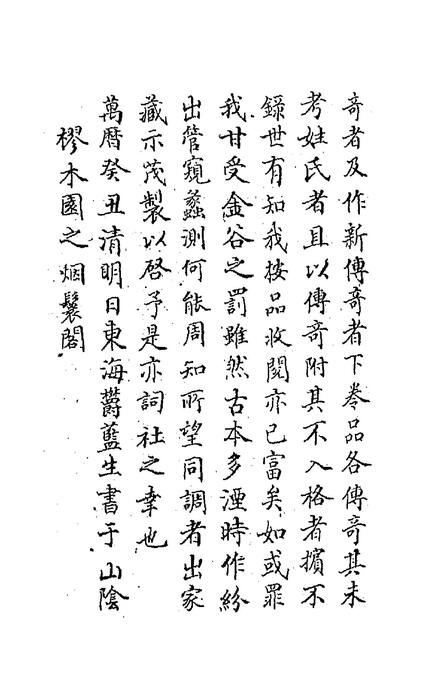 奇者及作新傳奇者下卷品各傳奇其未
考姓氏者且以傳奇附其不入格者擯不
錄世有知我按品收閱亦已富矣如或罪
我甘受金谷之罰雖然古本多湮時作紛
出管窺蠡測何能周知所望同調者出家
藏示茂製以啓予是亦詞社之幸也
萬曆癸丑清明日東海欝藍生書于山陰
樛木園之烟鬟閣